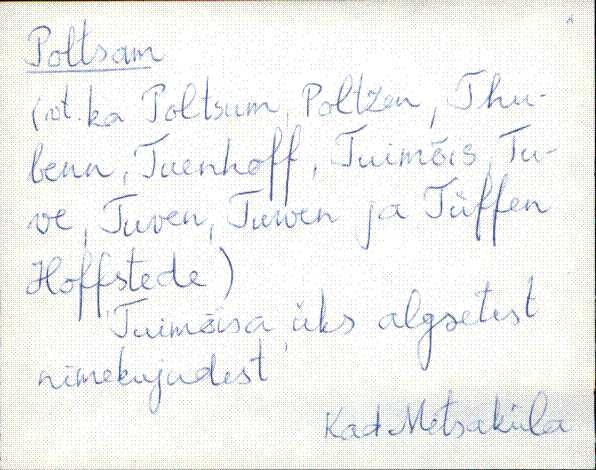 Poltsam
(vt. ka Poltsum, Poltzen, Thu-
benn, Tuenhoff, Tuimõis, Tu-
ve, Tuven, Tuwen ja Tüffen
Hoffstede)
'Tuimõisa üks algsetest
nimekujudest'
Kad Metsaküla